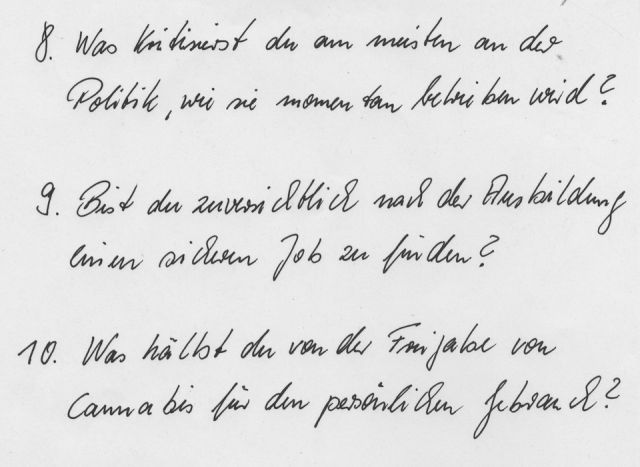 8. Was kritisierst du am meisten an der
Politik, wie sie momentan betrieben wird?
9. Bist du zuversichtlich nach der Ausbildung
einen sicheren Job zu finden?
10. Was hältst du von der Freigabe von
Cannabis für den persönlichen Gebrauch?